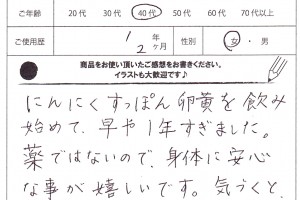 ご年齢 20代 30代 40代 50代 60代 70代以上
ご使用歴 1年 2ヶ月 性別 女・男
商品をお使い頂いたご感想をお書きください。
イラストも大歓迎です♪
にんにくすっぽん卵黄を飲み
始めて、早や1年すぎました。
薬ではないので、身体に安心
な事が嬉しいです。気づくと、